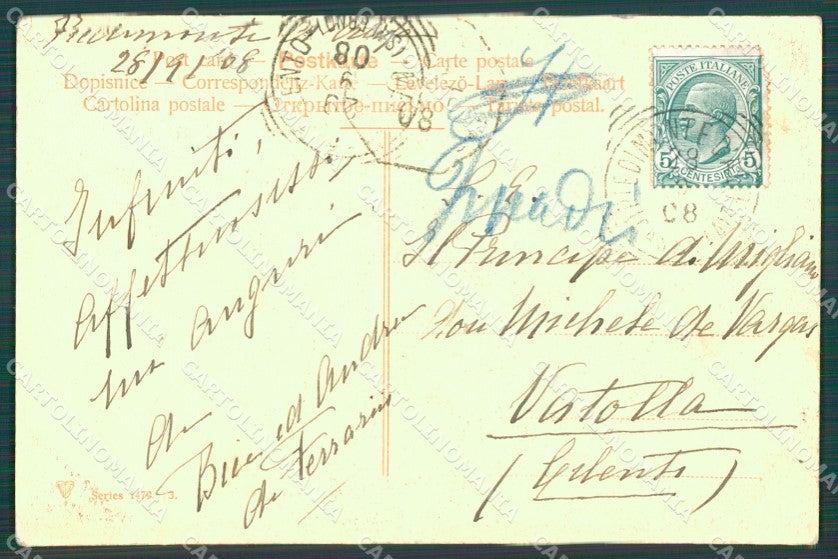 28/9/08
Post card — Postkarte — Carte postale
Dopisnice — Correspondenz-Karte — Levelező-Lap —
Cartolina postale — Открытое письмо — postal.
POSTE ITALIANE
5 CENTESIMI 5
08
08
Infiniti,
affettuosissi
mi auguri
da
Bice ed Andrea
de
S. E.
Il Principe di Migliano
Don Michele de Vargas
Vatolla
(Cilento)
Series 1479 3.
CARTOLINOMANIA